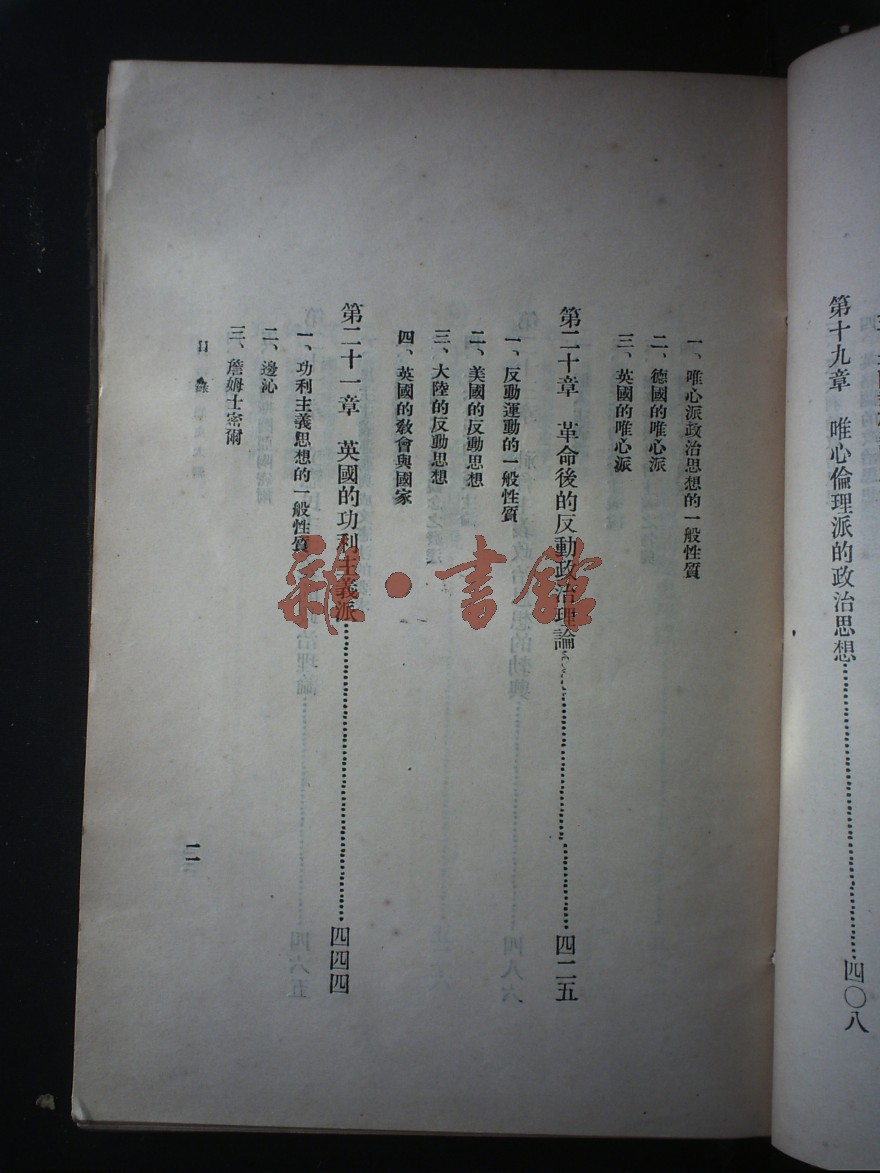 第十九章　唯心倫理派的政治思想……四〇八
一、唯心派政治思想的一般性質
二、德國的唯心派
三、英國的唯心派
第二十章　革命後的反動政治理論……四二五
一、反動運動的一般性質
二、美國的反動思想
三、大陸的反動思想
四、英國的敎會與國家
第二十一章　英國的功利主義派……四四四
一、功利主義思想的一般性質
二、邊沁
三、詹姆士密爾
目　錄
一一
雜·書館